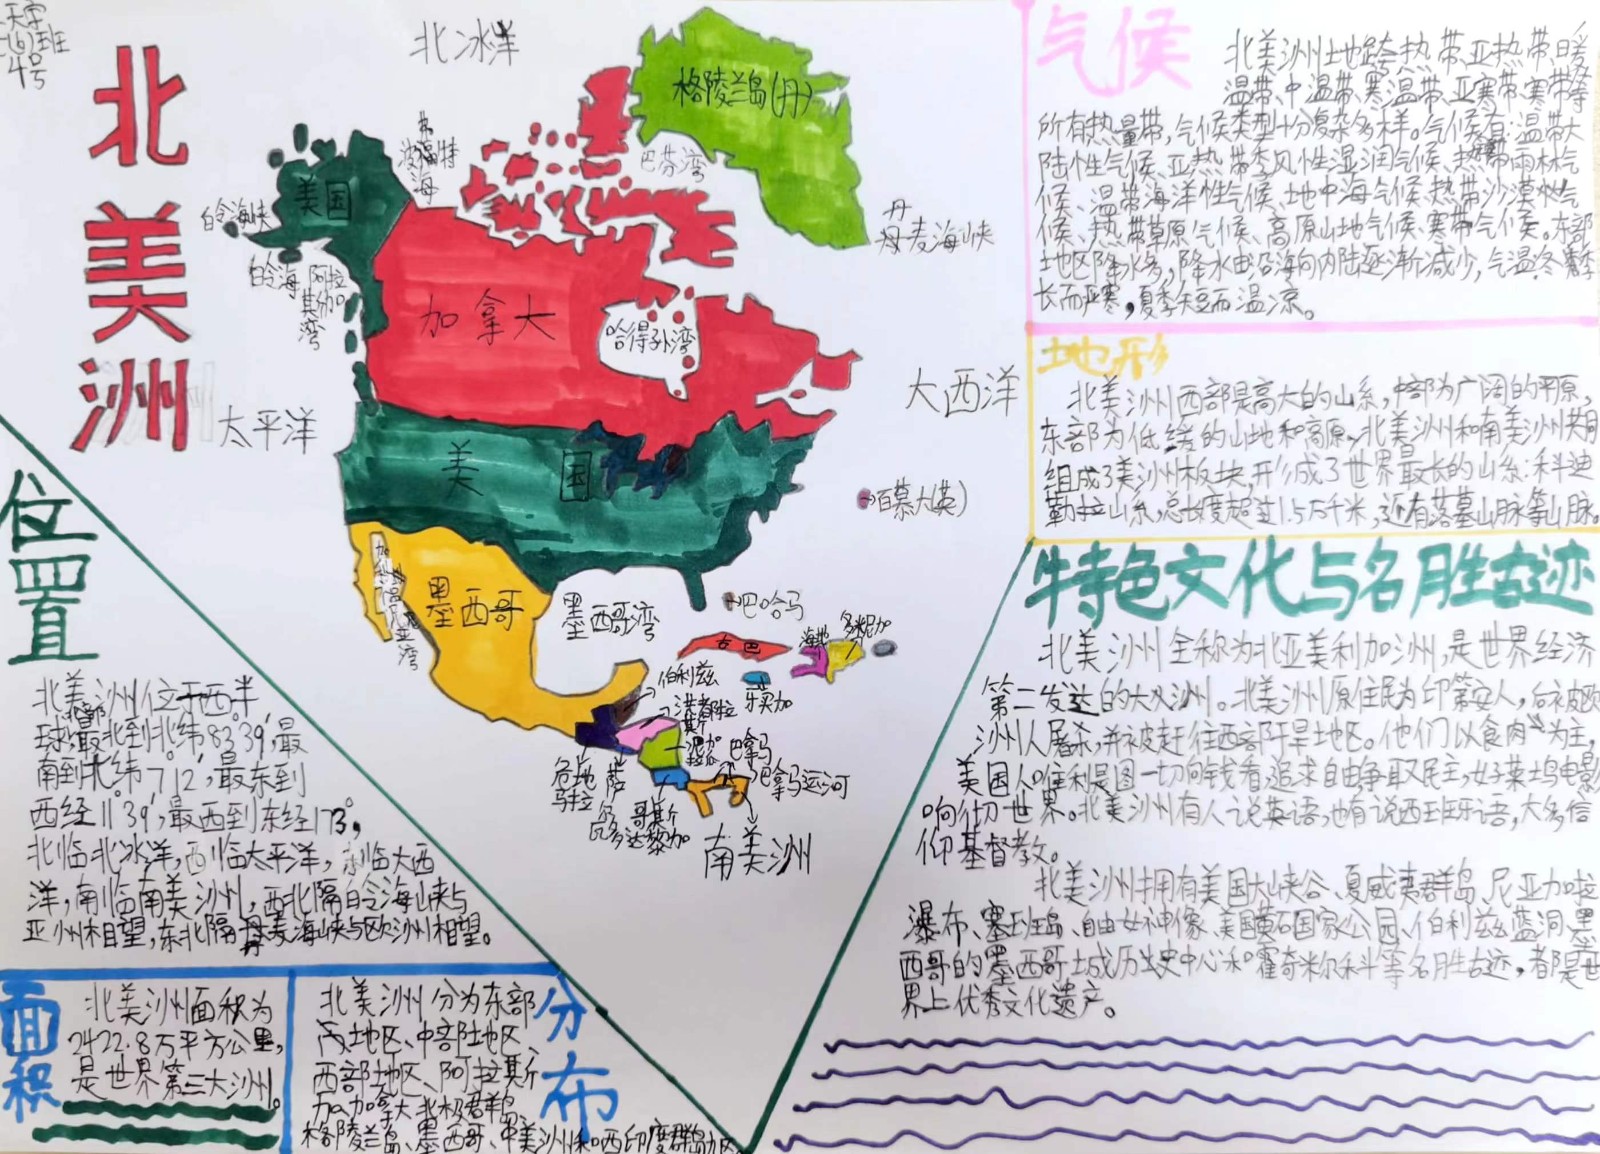 北美洲
北冰洋
格陵兰岛(丹)
巴芬湾
波福特海
美国
白令海峡
白令海
阿拉斯加湾
丹麦海峡
加拿大
哈得孙湾
太平洋
大西洋
美国
百慕大(英)
墨西哥
墨西哥湾
巴哈马
古巴
海地
多米尼加
牙买加
伯利兹
洪都拉斯
巴拿马
巴拿马运河
危地马拉
萨尔瓦多
哥斯达黎加
南美洲
气候
北美洲地跨热带、亚热带、暖
温带、中温带、寒温带、亚寒带、寒带等
所有热量带,气候类型十分复杂多样。气候有:温带大
陆性气候、亚热带季风性湿润气候、热带雨林气
候、温带海洋性气候、地中海气候、热带沙漠气
候、热带草原气候、高原山地气候、寒带气候。东部
地区降水多,降水由沿海向内陆逐渐减少,气温冬季
长而严寒,夏季短而温凉。
地形
北美洲西部是高大的山系,中部为广阔的平原,
东部为低缓的山地和高原。北美洲和南美洲共同
组成了美洲板块,形成了世界最长的山系:科迪
勒拉山系,总长度超过1.5万千米,还有落基山脉等山脉。
特色文化与名胜古迹
北美洲全称为北亚美利加洲,是世界经济
第二发达的大洲。北美洲原住民为印第安人,后被欧
洲人屠杀,并被赶往西部干旱地区。他们以食肉为主,
美国人唯利是图一切向钱看,追求自由争取民主,好莱坞电影
响彻世界。北美洲有人说英语,也有说西班牙语,大多信
仰基督教。
北美洲拥有美国大峡谷、夏威夷群岛、尼亚加拉
瀑布、塞班岛、自由女神像、美国黄石国家公园、伯利兹蓝洞、墨
西哥的墨西哥土城历史中心和霍奇米尔科斗等名胜古迹,都是世
界上优秀文化遗产。
位置
北美洲位于西半
球北部,最北到北纬83°39′,最
南到北纬7°12′,最东到
西经11°39′,最西到东经173°,
北临北冰洋,西临太平洋,东临大西
洋,南临南美洲,西北隔白令海峡与
亚州相望,东北隔丹麦海峡与欧洲相望。
面积
北美洲面积为
2422.8万平方公里,
是世界第三大洲。
分布
北美洲分为东部
地区、中部地区、
西部地区、阿拉斯
加、加拿大北极群岛、
格陵兰岛、墨西哥、中美洲和西印度群岛地区